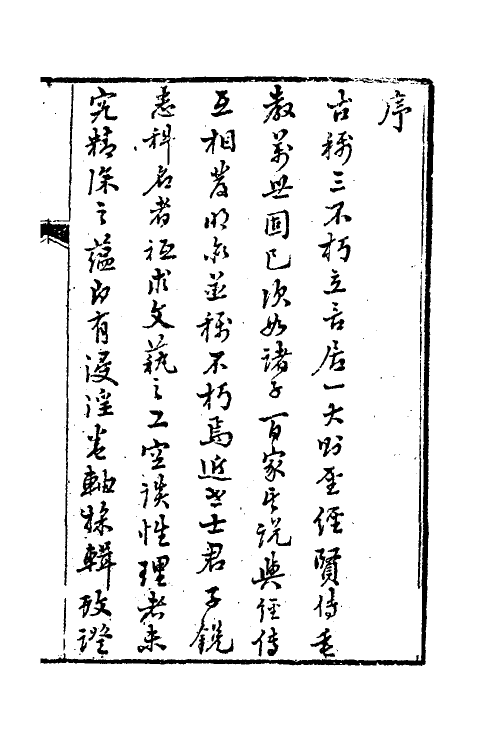 序
古稱三不朽立言居一大則聖經賢傳垂
教萬世固已次如諸子百家之說與經傳
互相發明亦並稱不朽焉近世士君子銳
志科名者祗求文藝之工空談性理者未
究精深之蘊即有浸淫卷軸採輯攷證